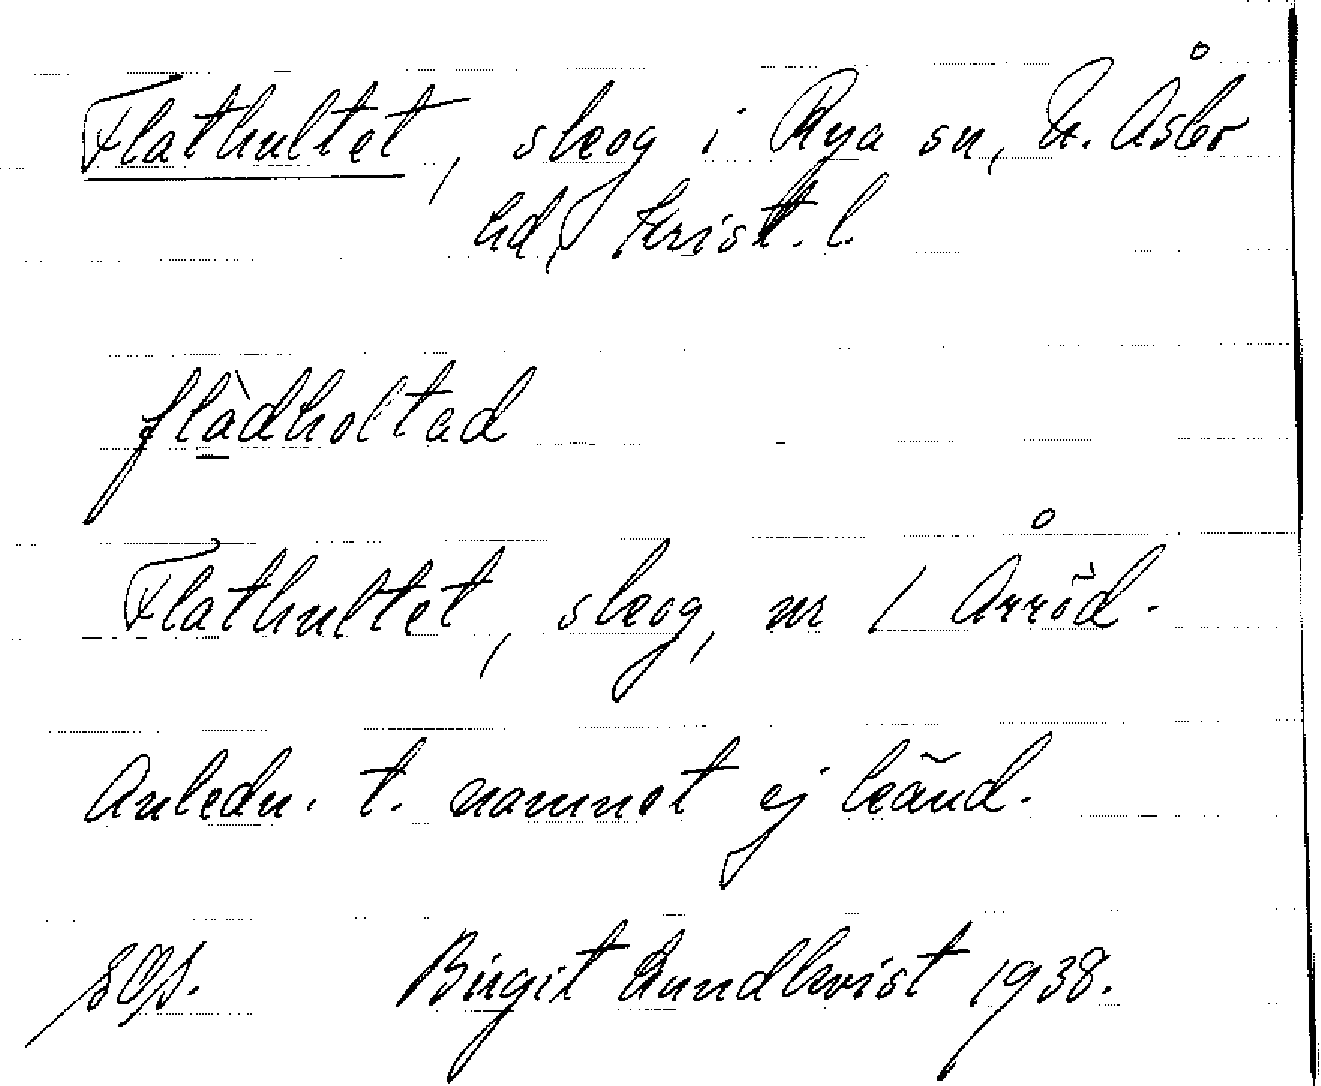 Flathultet, skog i Rya sn, N. Åsbo
hd, Krist. l.
flàdholtad
Flathultet, skog, nr 1 Arröd.
Anledn. t. namnet ej känd.
Birgit Lundkvist 1938.